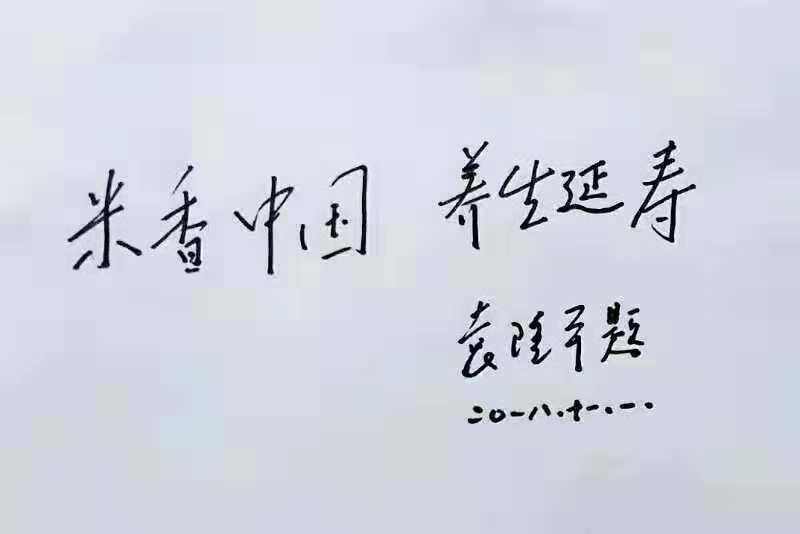 米香中国 养生延寿
袁隆平题
二〇一八.十一.一.